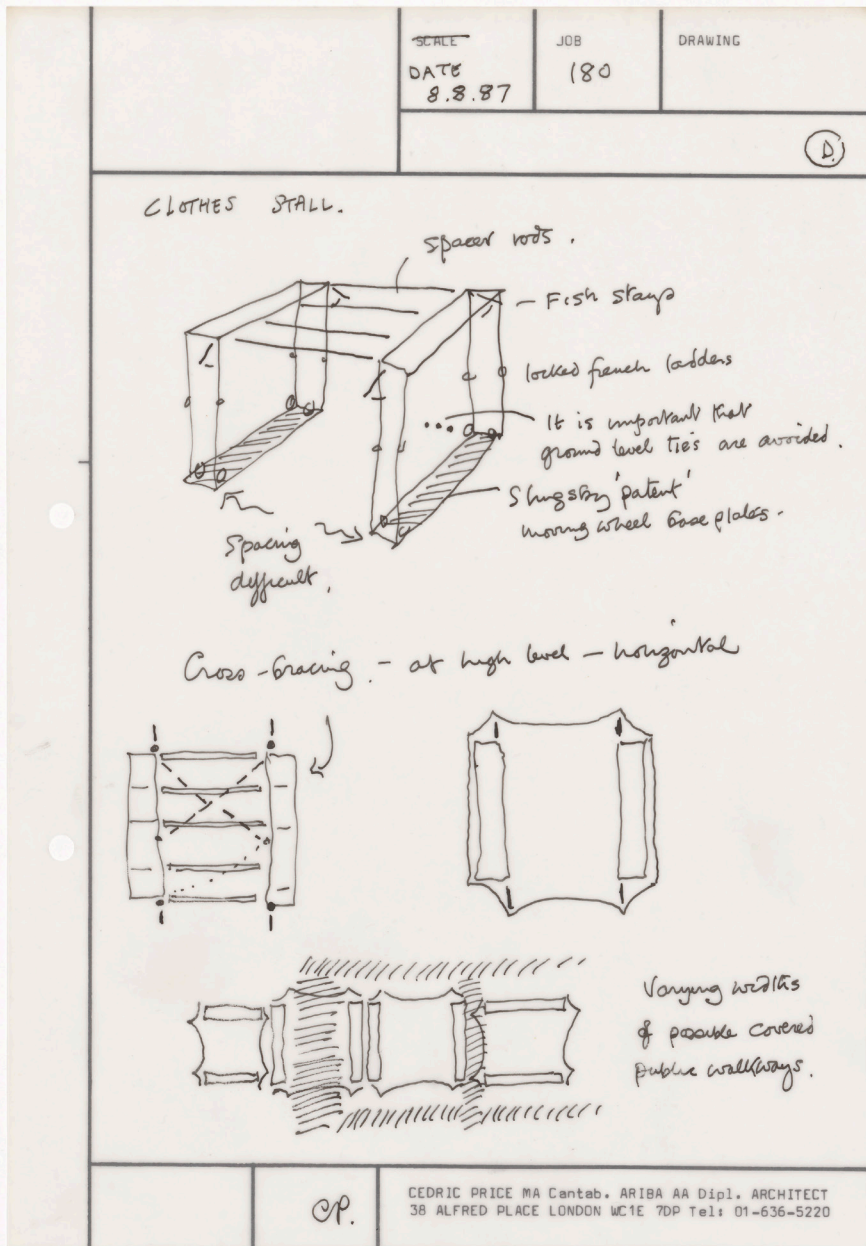 SCALE
DATE
8.8.87
JOB
180
DRAWING
D.
CLOTHES STALL.
Spacer rods.
- Fish stays
locked french ladders
It is important that
ground level ties are avoided.
Slingsby 'patent'
moving wheel base plates.
Spacing
difficult.
Cross-bracing - at high level - horizontal
Varying widths
of possible covered
public walkways.
CP.
CEDRIC PRICE MA Cantab. ARIBA AA Dipl. ARCHITECT
38 ALFRED PLACE LONDON WC1E 7DP Tel: 01-636-5220